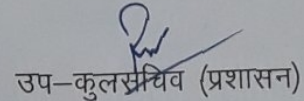 उप–कुलसचिव (प्रशासन)